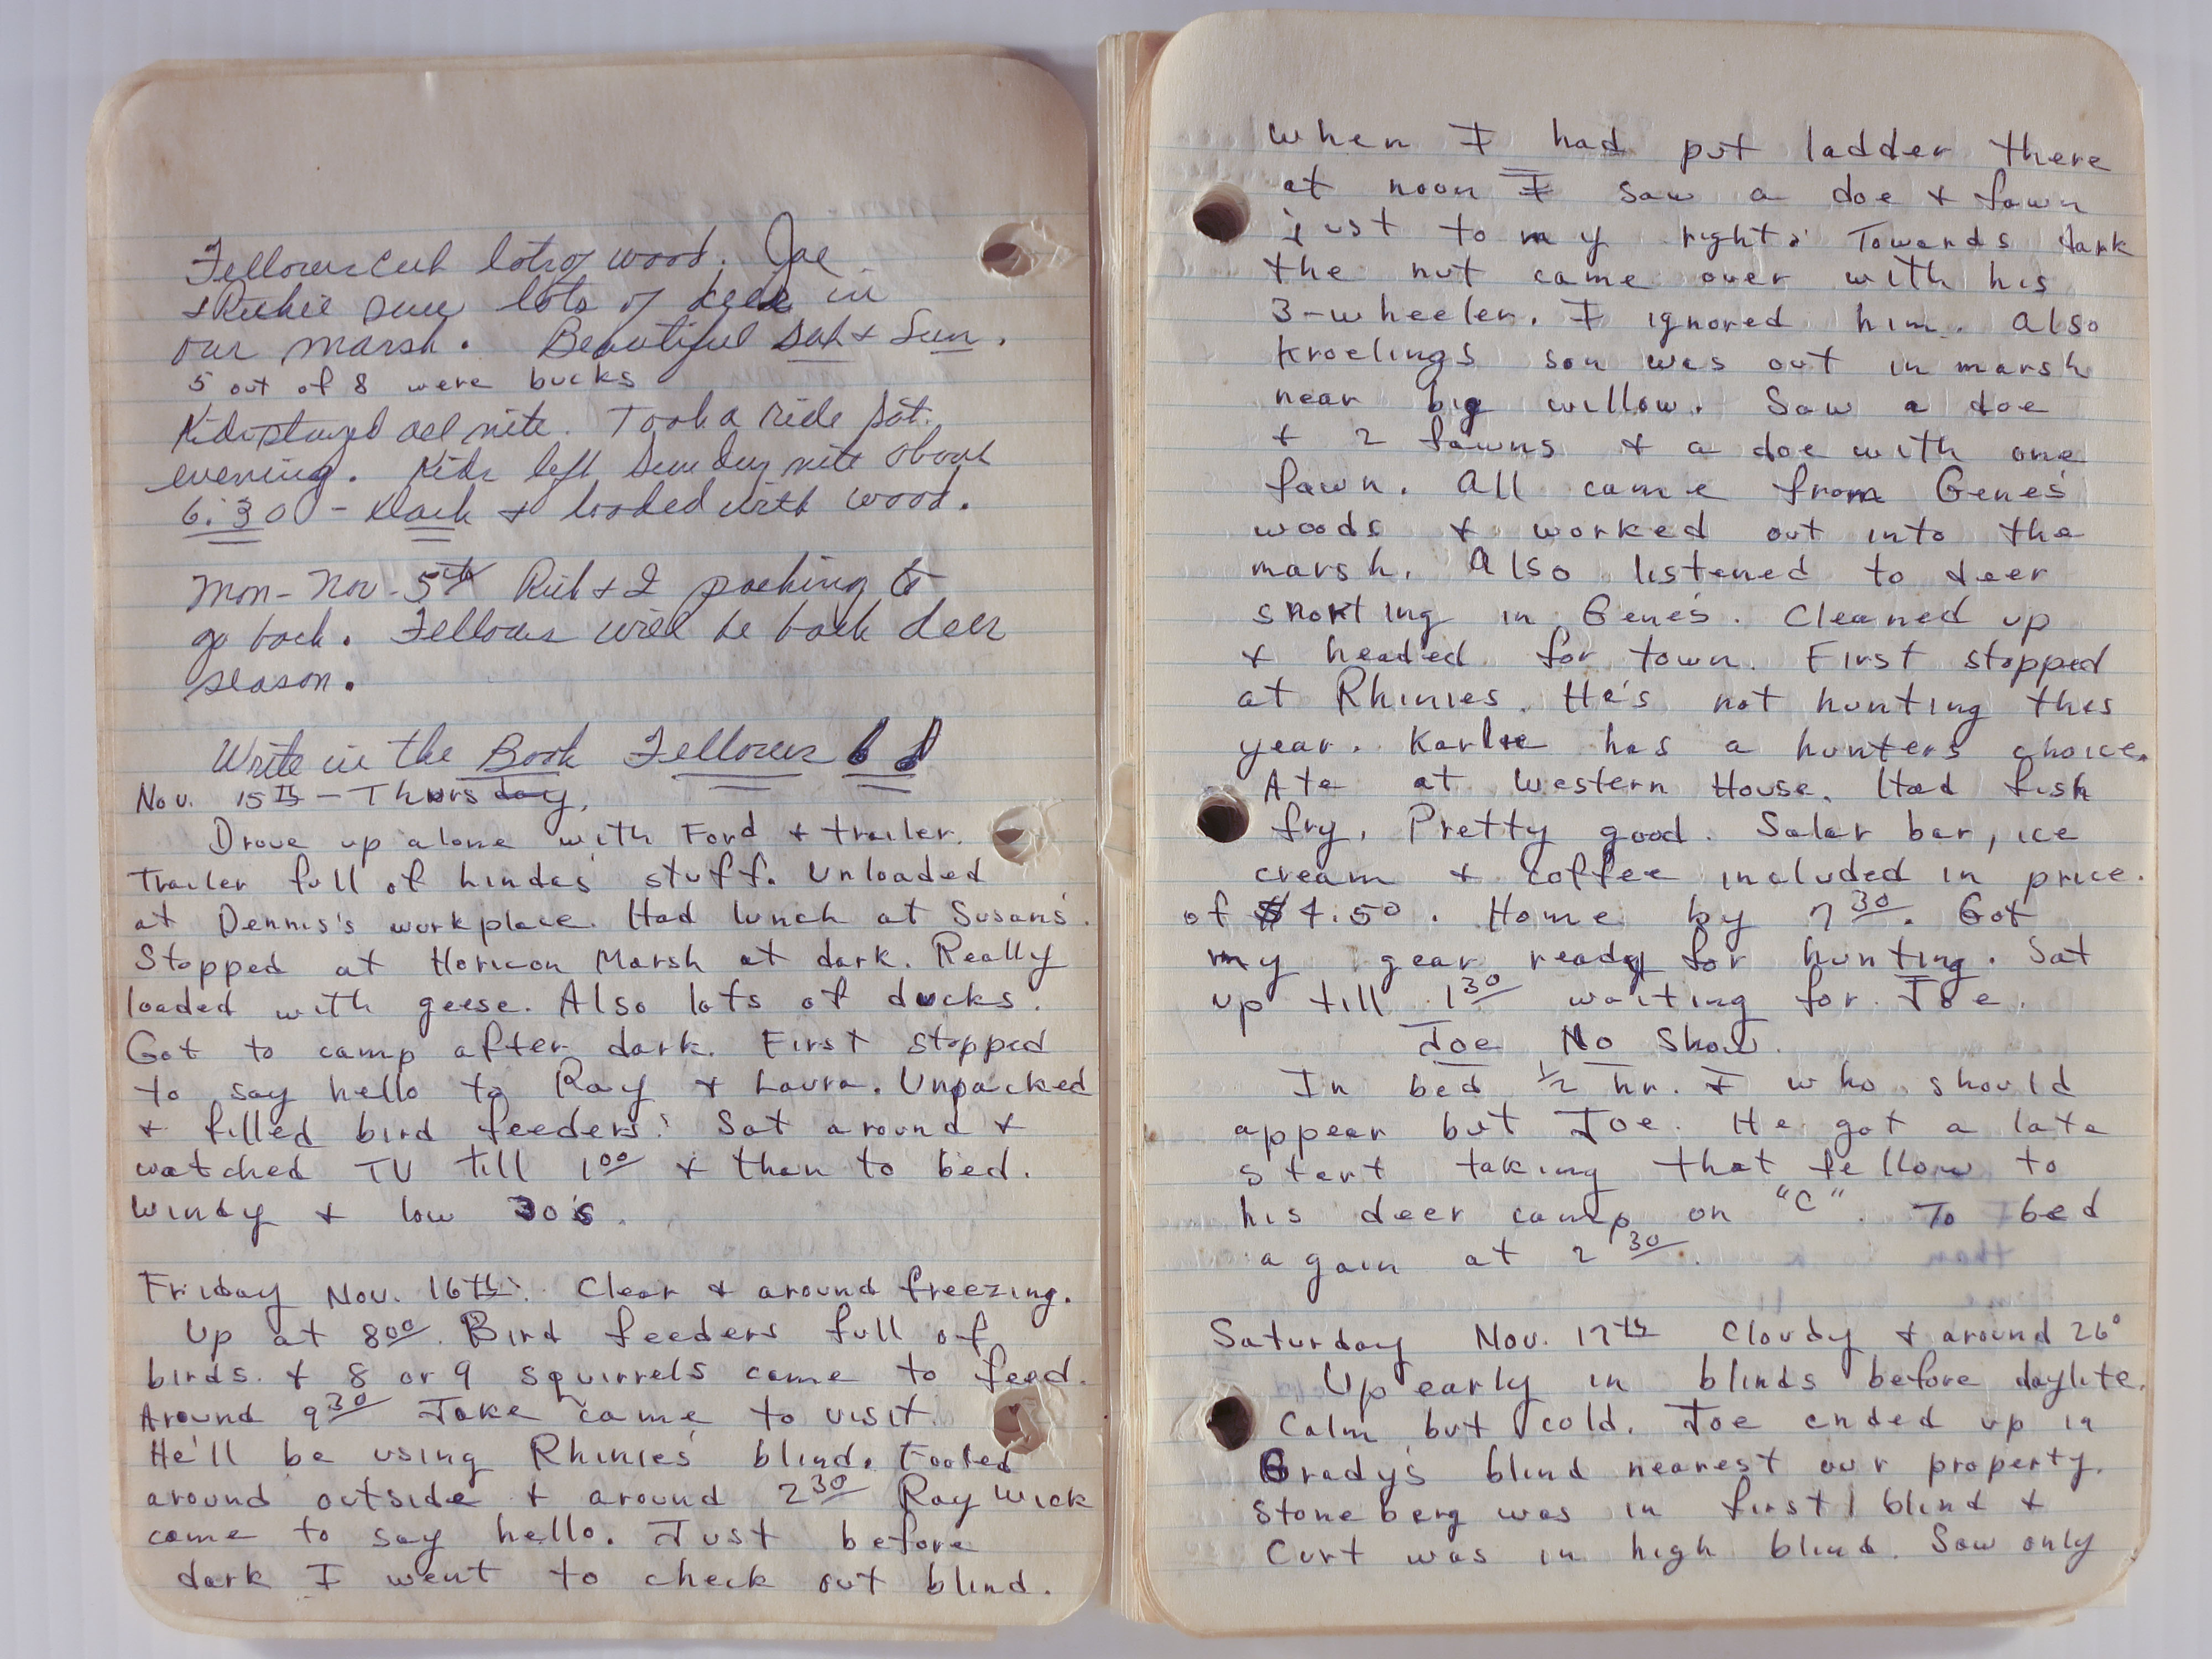 Fellows cut lots of wood. Joe
& Richie saw lots of deer in
our marsh. Beautiful Sat & Sun.
5 out of 8 were bucks
Kids stayed all nite. Took a ride Sat.
evening. Kids left Sunday nite about
6:30 - dark & loaded with wood.
Mon - Nov - 5th Rich & I packing to
go back. Fellows will be back deer
season.
Write in the Book Fellows !!
Nov. 15th - Thursday,
Drove up alone with Ford & trailer.
Trailer full of hindas stuff. Unloaded
at Dennis's workplace. Had lunch at Susans.
Stopped at Horicon Marsh at dark. Really
loaded with geese. Also lots of ducks.
Got to camp after dark. First stopped
to say hello to Ray & Laura. Unpacked
& filled bird feeders. Sat around &
watched TV till 1⁰⁰ & than to bed.
Windy & low 30's.
Friday Nov. 16th. Clear & around freezing.
Up at 8⁰⁰. Bird feeders full of
birds. & 8 or 9 squirrels came to feed.
Around 9³⁰ Jake came to visit.
He'll be using Rhinies' blind. Fooled
around outside & around 2³⁰ Ray Wick
came to say hello. Just before
dark I went to check out blind.
When I had put ladder there
at noon I saw a doe & fawn
just to my right. Towards dark
the nut came over with his
3-wheeler. I ignored him. Also
Kroelings son was out in marsh
near big willow. Saw a doe
& 2 fawns & a doe with one
fawn. All came from Gene's
woods & worked out into the
marsh. Also listened to deer
snorting in Gene's. Cleaned up
& headed for town. First stopped
at Rhinies. He's not hunting this
year. Karlie has a hunters choice.
Ate at Western House. Had fish
fry. Pretty good. Salar bar, ice
cream & coffee included in price.
of $4.50. Home by 7³⁰. Got
my gear ready for hunting. Sat
up till 1³⁰ waiting for Joe.
Joe No Show.
In bed ½ hr. & who should
appear but Joe. He got a late
start taking that fellow to
his deer camp on "C". To bed
again at 2³⁰.
Saturday Nov. 17th Cloudy & around 26°
Up early in blinds before daylite.
Calm but cold. Joe ended up in
Grady's blind nearest our property.
Stoneberg was in first blind &
Curt was in high blind. Saw only